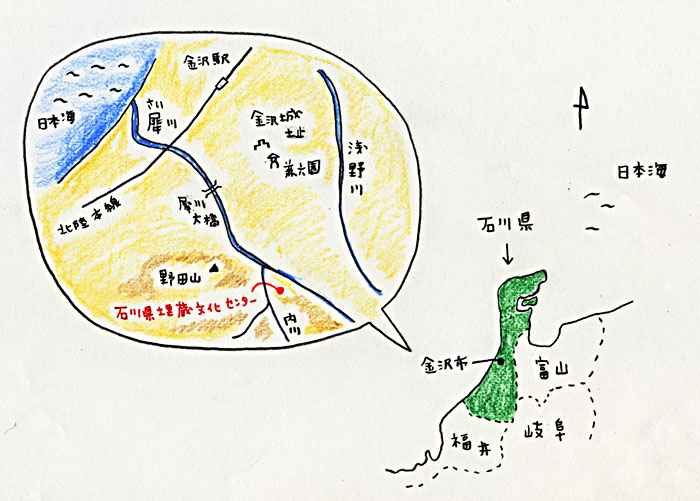 金沢駅
日本海
さい
犀川
金沢城
址
兼六園
浅野川
北陸本線
犀川
大橋
野田山
石川県埋蔵文化センター
内川
日本海
石川県
金沢市
富山
岐阜
福井